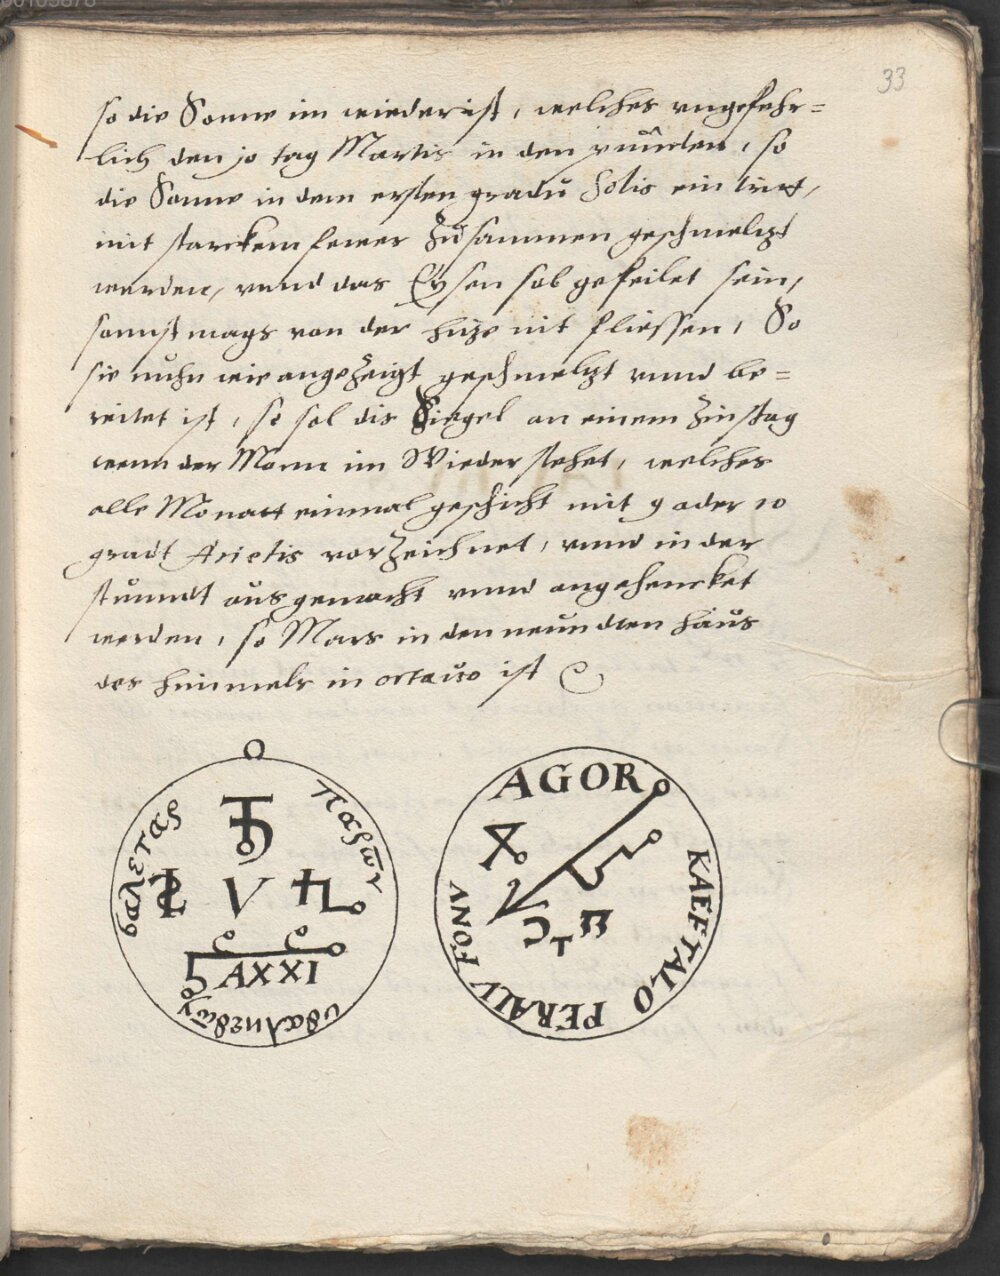 33
so die Sonne im wieder ist, welches vngefehr=
lich den 10 tag Martis in den stunden, so
die Sonne in dem ersten gradu Solis ein tritt,
mit starckem fewer zusammen geschmeltzt
werden, vnnd das Eysen sol gefeilet sein,
sonnst mags von der hitze nit fliessen, So
sie nuhn wie angezeigt geschmeltzt vnnd be=
reitet ist, so sol dis Siegel an einem Zinstag
wenn der Monn im Wieder stehet, welches
alle Monatt einmal geschicht mit 9 oder 10
gradt Arietis vorzeichnet, vnnd in der
stunndt ausgemacht vnnd angehencket
werden, so Mars in den neundten haus
des himmels in octauo ist
βαλετας
παρῶν
V
AXXI
AGOR
KAEFTALO
PERALV
FONV